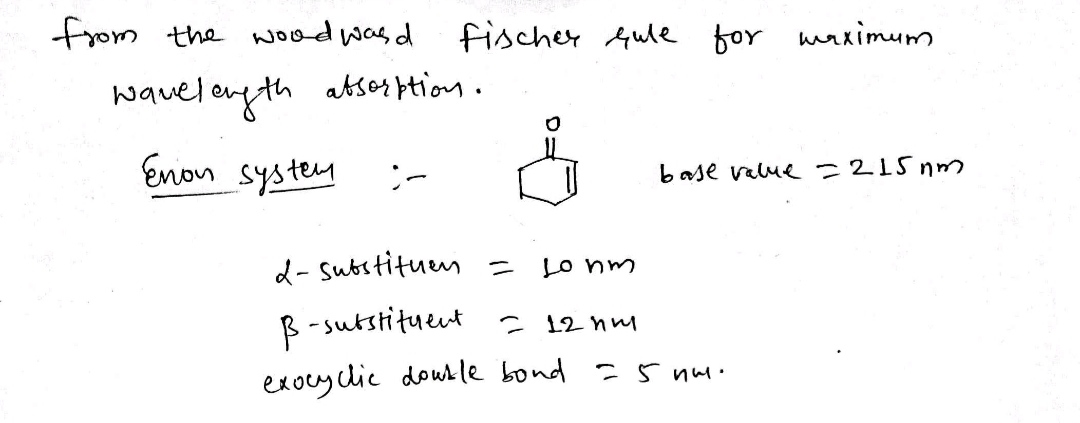 from the woodward fischer rule for maximum
wavelength absorption.
Enon system :- O base value = 215 nm
α-substituen = 10 nm
β-substituent = 12 nm
exocyclic double bond = 5 nm.